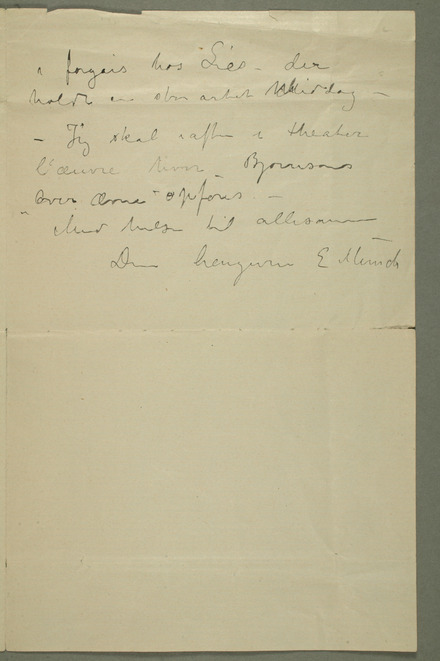 i forgårs hos Lies – der
holdt en stor artet Middag –
– Jeg skal iaften i theater
l'œuvre hvor Bjørnsons
"over ævne" opføres. –
Med hilsen til allesammen
Din hengivne E Munch